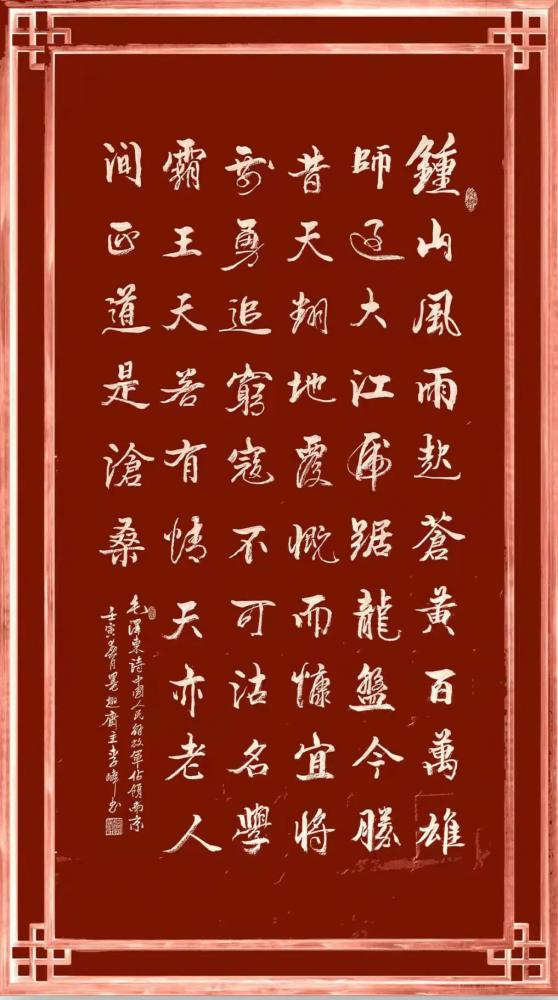 鍾山風雨起蒼黃百萬雄
師過大江虎踞龍盤今勝
昔天翻地覆慨而慷宜將
剩勇追窮寇不可沽名學
霸王天若有情天亦老人
間正道是滄桑
毛澤東詩中國人民解放軍佔領南京
壬寅春月墨趣齋主李峰书